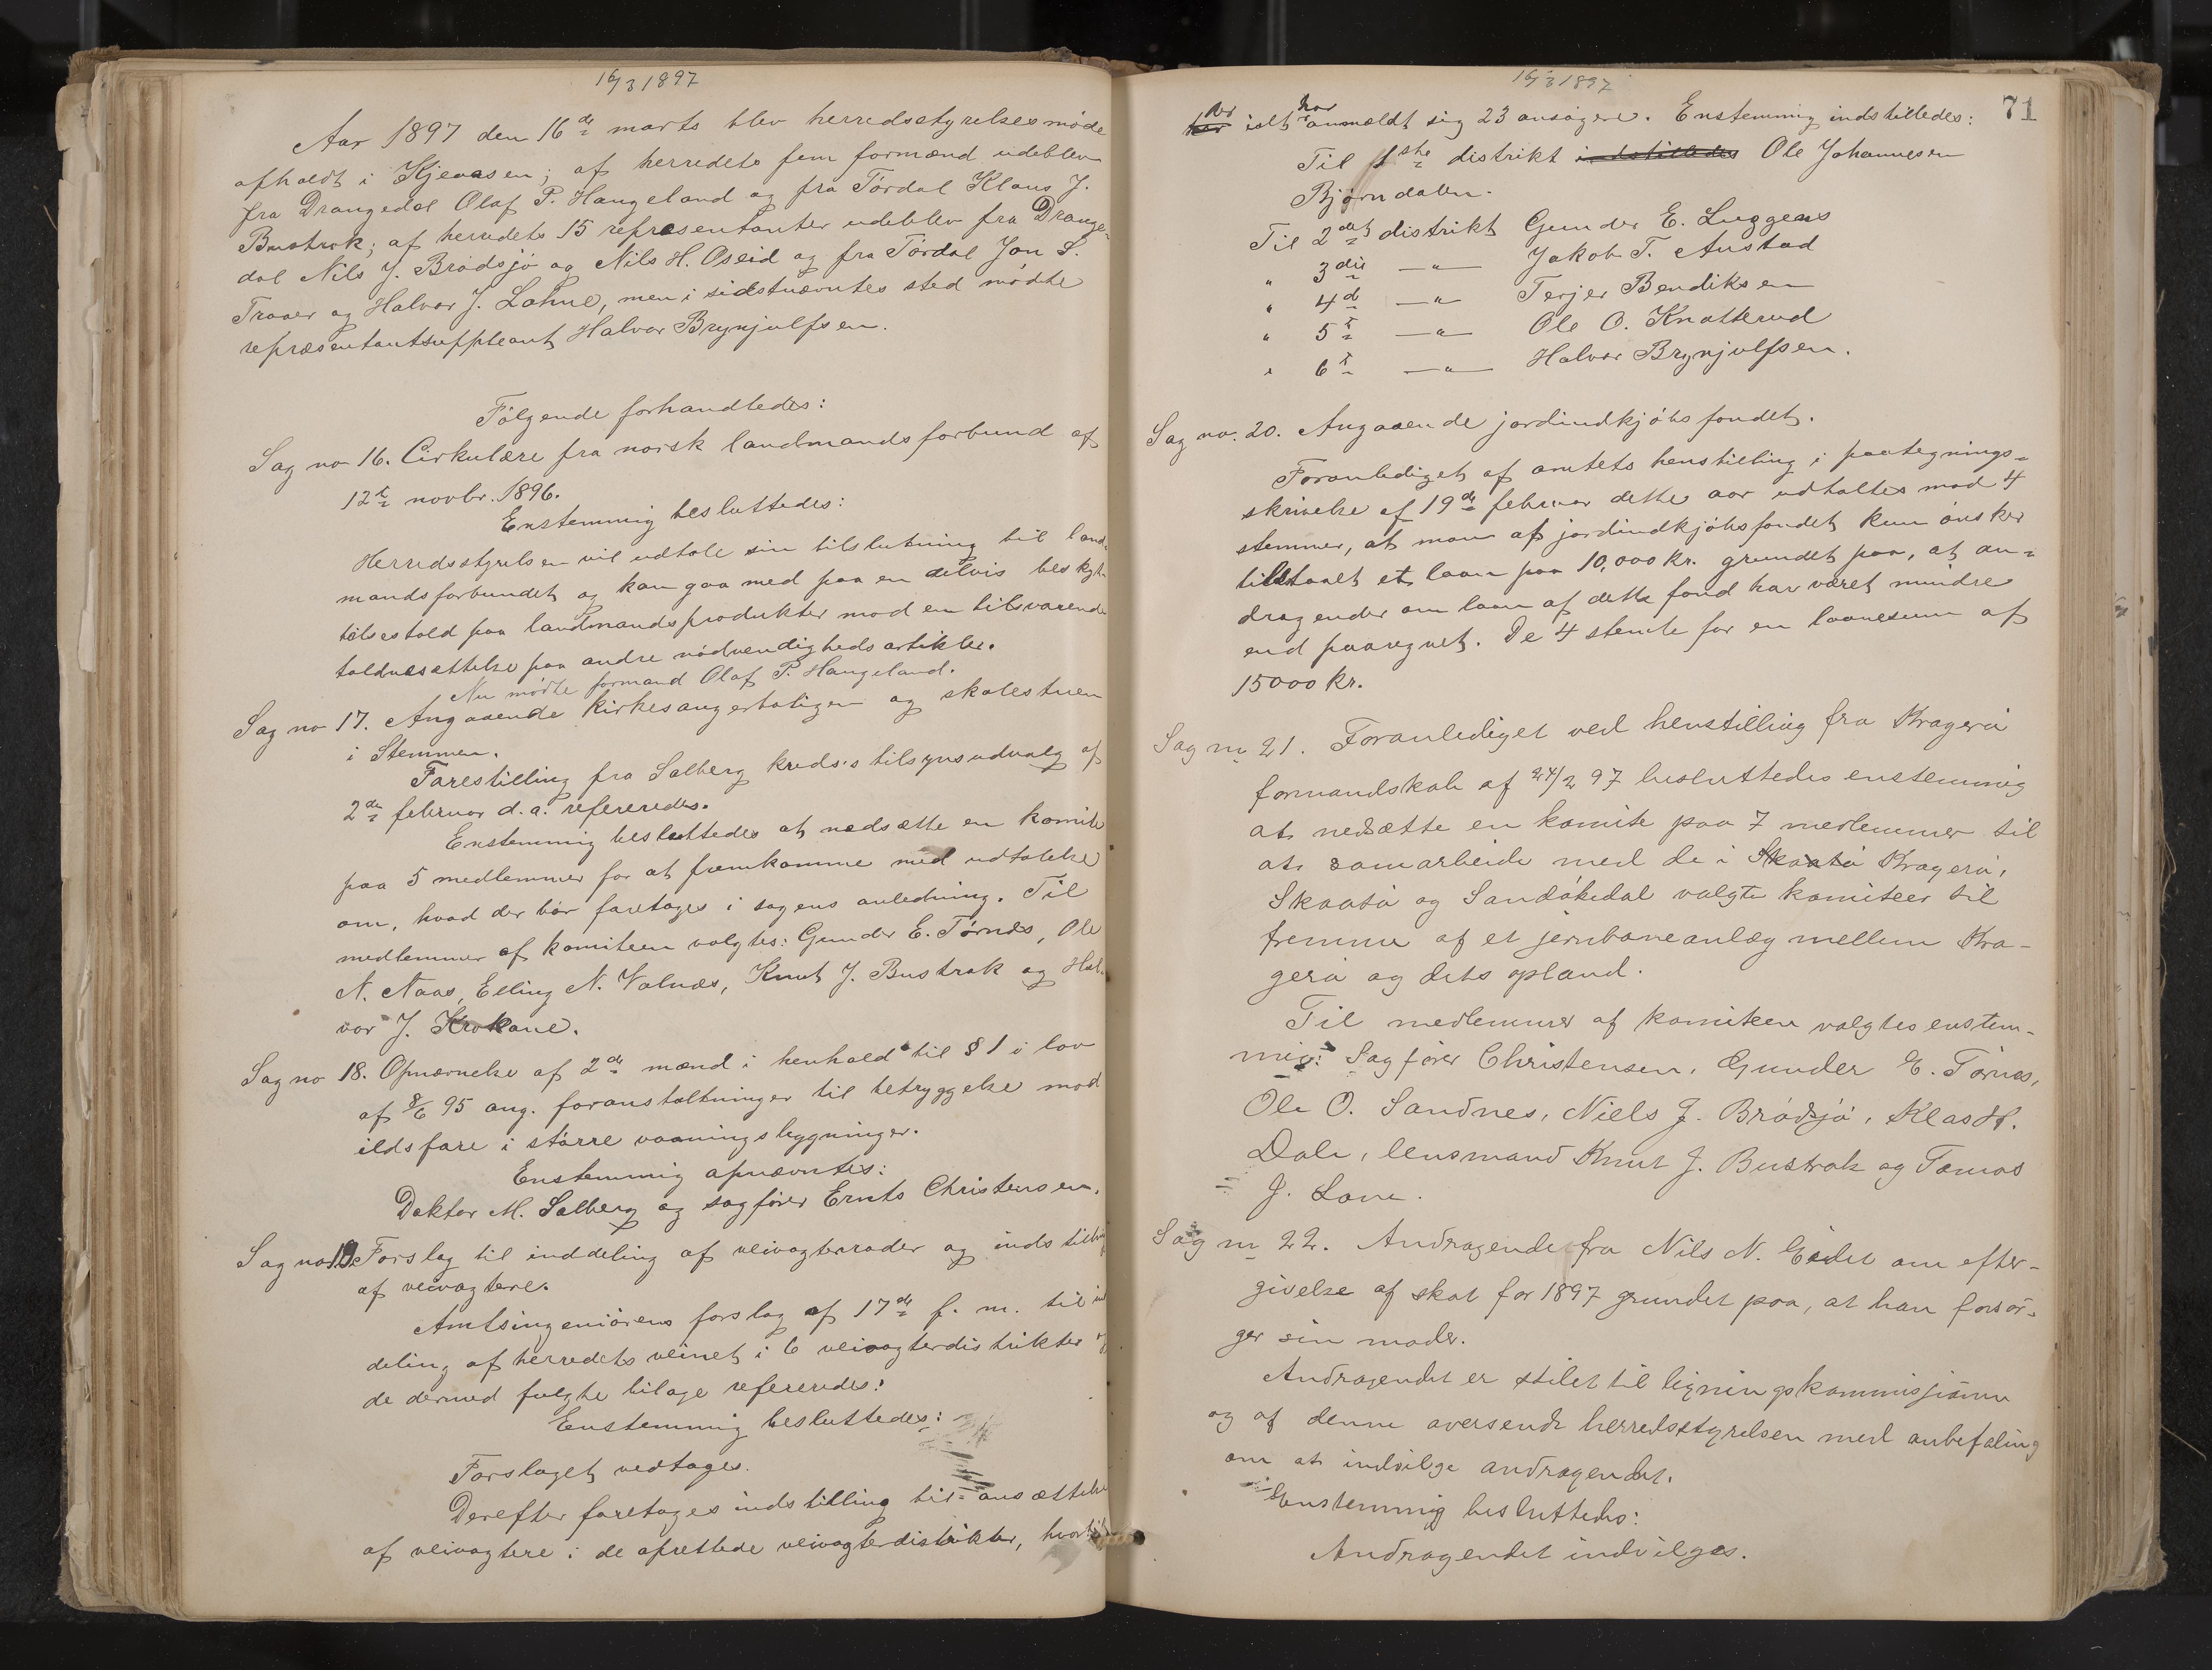 16/3 1897
Aar 1897 den 16de marts blev herredsstyrelsesmøde
afholdt i Kjeaasen; af herredets fem formænd udeblev
fra Drangedal Olaf P. Haugeland og fra Tørdal Klaus J.
Bustrak; af herredets 15 repræsentanter udeblev fra Drange-
dal Nils J. Brødsjø og Nils H. Oseid og fra Tørdal Jon S.
Traaer og Halvor J. Lohne, men i sidstnævntes sted mødte
repræsentantsuppleant Halvor Brynjulfsen.
Følgende forhandledes:
Sag no 16. Cirkulære fra norsk landmandsforbund af
12te novbr. 1896.
Enstemmig besluttedes:
Herredsstyrelsen vil udtale sin tilslutning til land-
mandsforbundet og kan gaa med paa en delvis beskyt-
telsestold paa landmandsprodukter mod en tilsvarende
toldnedsættelse paa andre nødvendighedsartikler.
Nu mødte formand Olaf P. Haugeland.
Sag no 17. Angaaende kirkesangerboligen og skolestuen
i Stemmen.
Forestilling fra Solberg kreds's tilsynsudvalg af
2den februar d.a. refereredes.
Enstemmig besluttedes at nedsætte en komite
paa 5 medlemmer for at fremkomme med udtalelse
om, hvad der bør foretages i sagens anledning. Til
medlemmer af komiteen valgtes: Gunder E. Tørnes, Ole
N. Naas, Elling N. Valnæs, Knut J. Bustrak og Hal-
vor J. Krokane.
Sag no 18. Opnævnelse af 2de mænd i henhold til § 1 i lov
af 8/6 95 ang. foranstaltninger til betryggelse mod
ildsfare i større vaaningsbygninger.
Enstemmig opnævntes:
Doktor M. Solberg og sagfører Ernts Christensen.
Sag no 19. Forslag til inddeling af veivogterroder og indstilling
af veivogtere.
Amtsingeniørens forslag af 17de f. m. til ind
deling af herredets veinet i 6 veivogterdistrikter og
de dermed fulgte bilage refereredes:
Enstemmig besluttedes:
Forslaget vedtages.
Derefter foretages indstilling til ansættelse
af veivogtere i de oprettede veivogterdistrikter, hvortil
16/3 1897
71
har ialt har anmeldt sig 23 ansøgere. Enstemmig indstilledes:
Til 1ste distrikt indstilledes Ole Johannesen
Bjørndalen.
Til 2det distrikt Gunder E. Luggens
" 3die —"— Jakob T. Austad
" 4de —"— Terjer Bendiksen
" 5te —"— Ole O. Knatterud
" 6te —"— Halvor Brynjulfsen.
Sag no. 20. Angaaende jordindkjøbsfondet.
Foranlediget af amtets henstilling i paategnings-
skrivelse af 19de februar dette aar udtaltes mod 4
stemmer, at man af jordindkjøbsfondet kun ønsker
tilstaaet et laan paa 10,000 kr. grundet paa, at an-
dragender om laan af dette fond har været mindre
end paaregnet. De 4 stemte for en laanesum af
15000 kr.
Sag no 21. Foranlediget ved henstilling fra Kragerø
formandskab af 24/2 97 besluttedes enstemmig
at nedsætte en komite paa 7 medlemmer til
at samarbeide med de i Skaatø Kragerø,
Skaatø og Sandøkedal valgte komiteer til
fremme af et jernbaneanlæg mellem Kra-
gerø og dets opland.
Til medlemmer af komiteen valgtes enstem-
mig: Sagfører Christensen, Gunder E. Tørnes,
Ole O. Sandnes, Niels J. Brødsjø, Klas H.
Dale, lensmand Knut J. Bustrak og Tomas
J. Lone.
Sag no 22. Andragende fra Nils N. Eidet om efter-
givelse af skat for 1897 grundet paa, at han forsør-
ger sin moder.
Andragendet er stilet til ligningskommisjonen
og af denne oversendt herredsstyrelsen med anbefaling
om at indvilge andragendet.
Enstemmig besluttedes:
Andragendet indvilges.